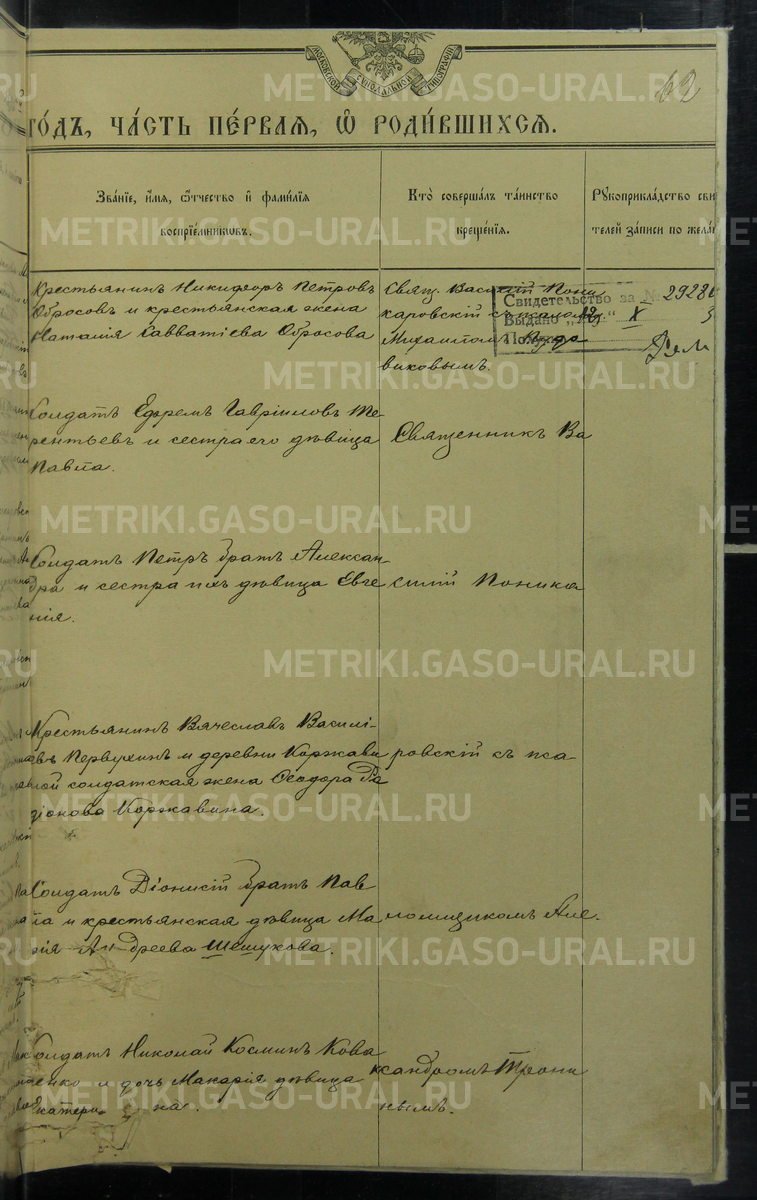 МОСКОВСКОЙ СѴНОДАЛЬНОЙ ТИПОГРАФІИ
62
ГО́ДЪ, ЧА́СТЬ ПЕ́РВАЯ, Ѽ РОДИ́ВШИХСЯ.
Зва́ніе, и́мя, ѻ҆́тчество и҆ фами́лія
воспріе́мниковъ.
Кто̀ соверша́лъ та́инство
креще́нія.
Рꙋкоприкла́дство сви
телей за́писи по жела́
Крестьянинъ Никифоръ Петровъ
Обросовъ и крестьянская жена
Наталія Савватіева Обросова
Свящ. Василій Пони
каровскій съ псалом
Михаиломъ
виковымъ.
Свидетельство за № 2928
Выдано „12“ X
Солдатъ Ефремъ Гавріиловъ Те-
рентьевъ и сестра его дѣвица
Павла.
Священникъ Ва
Солдатъ Петръ братъ Алексан-
дра и сестра ихъ дѣвица Евге
нія.
силій Поника
Крестьянинъ Вячеславъ Василі-
евъ Первухинъ и деревни Коржави
ной солдатская жена Ѳеодора Ра
діонова Коржавина.
ровскій съ пса
Солдатъ Діонисій братъ Пав
ла и крестьянская дѣвица Ма
рія Андреева Шешукова.
ломщикомъ Але-
Солдатъ Николай Косминъ Кова
ленко и дочь Макарія дѣвица
Екатерина.
ксандромъ Трони
нымъ.
METRIKI.GASO-URAL.RU